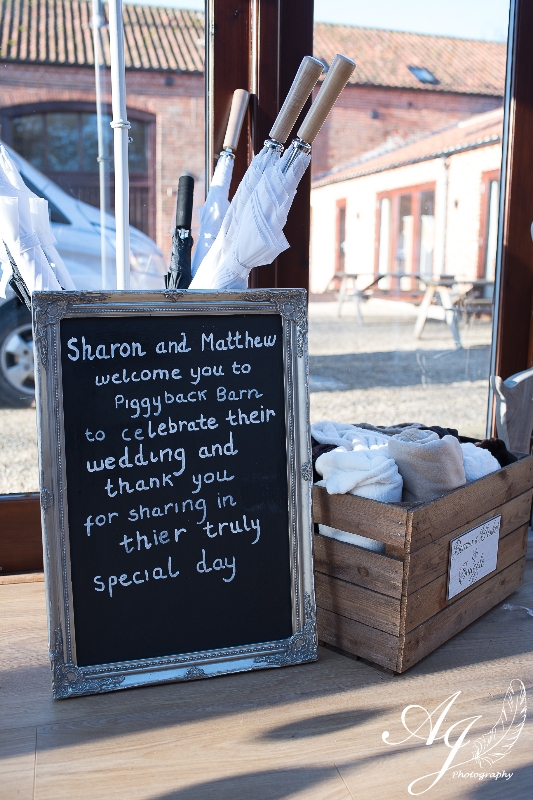 Sharon and Matthew
welcome you to
Piggyback Barn
to celebrate their
wedding and
thank you
for sharing in
thier truly
special day
AJ
Photography